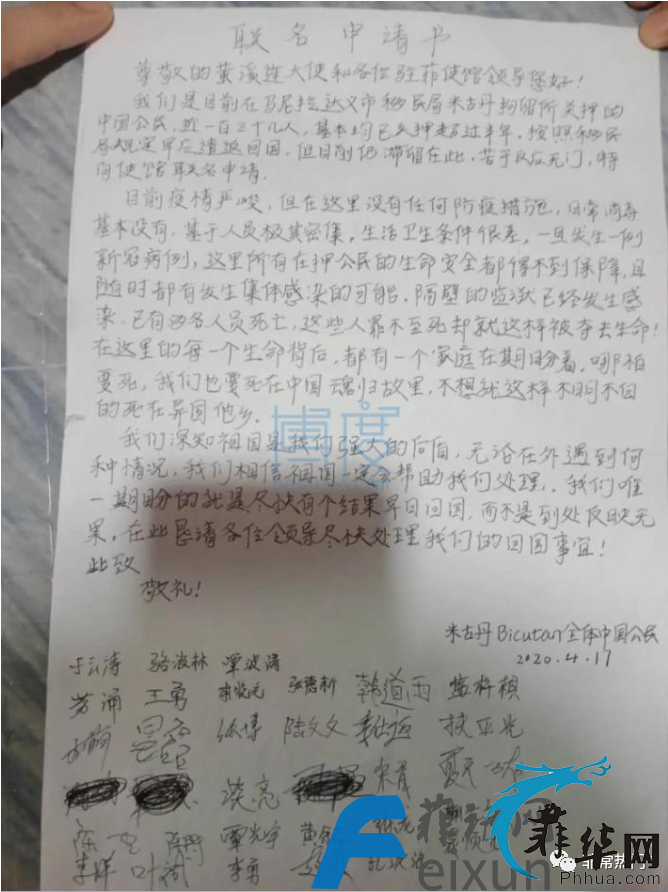 联名申请书
尊敬的黄溪连大使和各位驻菲使馆领导您好！
我们是目前在马尼拉达义市移民局米古丹拘留所关押的
中国公民，近一百三十几人，基本均已关押超过半年，按照移民
局规定早应遣返回国，但目前仍滞留在此，苦于反应无门，特
向使馆联名申请。
目前疫情严峻，但在这里没有任何防疫措施，日常消毒
基本没有，基于人员极其密集，生活卫生条件很差，一旦发生一例
新冠病例，这里所有在押公民的生命安全都得不到保障，且
随时都有发生集体感染的可能，隔壁的监狱已经发生感
染，已有多名人员死亡，这些人罪不至死却就这样被夺去生命！
在这里的每一个生命背后，都有一个家庭在期盼着，哪怕
要死，我们也要死在中国魂归故里，不想就这样不明不白
的死在异国他乡。
我们深知祖国是我们强大的后盾，无论在外遇到何
种情况，我们相信祖国一定会帮助我们处理，我们唯
一期盼的就是尽快有个结果早日回国，而不是到处反映无
果，在此恳请各位领导尽快处理我们的回国事宜！
此致
敬礼！
米古丹Bicutan全体中国公民
2020.4.17
骆波林
王勇 张德新 韩道雨
陆文文
谈亮
李勇
李洋 叶斌
博度
菲讯网
Feixun
菲华网
Phhua.com
非常热门